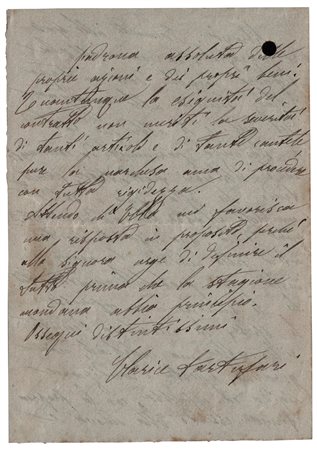 padrona assoluta delle
proprie azioni e dei propri beni.
Quantunque la esiguità del
contratto non meriti la severità
di tanti articoli e di tante cautele
pur la marchesa ama di procedere
con tutta rigidezza.
Attendo che Ella mi favorisca
una risposta in proposito, perché
alla signora urge di definire il
tutto prima che la stagione
mondana abbia principio.
Ossequi distintissimi
Clarice Tartufari